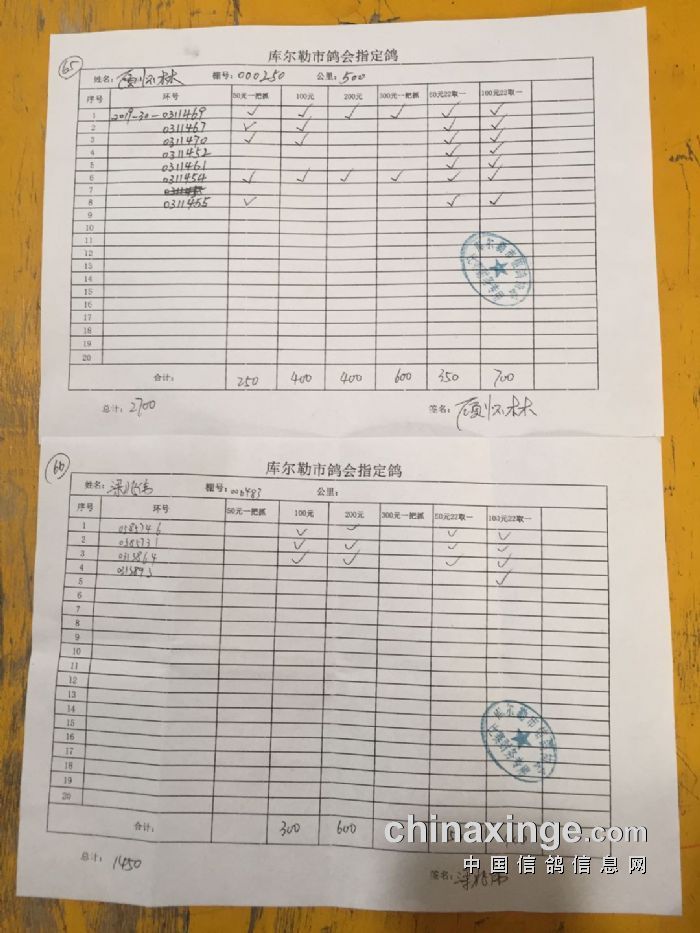 65
库尔勒市鸽会指定鸽
姓名: 顾怀林 棚号: 000250 公里: 500
序号 环号 50元一把抓 100元 200元 300元一把抓 50元22取一 100元22取一
1 2019-30-0311469 ✓ ✓ ✓ ✓ ✓ ✓
2 0311467 ✓ ✓ ✓ ✓
3 0311470 ✓ ✓ ✓ ✓
4 0311452 ✓ ✓
5 0311461 ✓ ✓
6 0311454 ✓ ✓ ✓ ✓ ✓ ✓
7
8 0311455 ✓ ✓ ✓
9
10
11
12
13
14
15
16
17
18
19
20
合计: 250 400 400 600 350 700
总计: 2700 签名: 顾怀林
66
库尔勒市鸽会指定鸽
姓名: 棚号: 006483 公里:
序号 环号 50元一把抓 100元 200元 300元一把抓 50元22取一 100元22取一
1 0585746 ✓ ✓ ✓ ✓
2 0585731 ✓ ✓ ✓ ✓
3 0315864 ✓ ✓ ✓ ✓
4 ✓
5
6
7
8
9
10
11
12
13
14
15
16
17
18
19
20
合计: 300 600
总计: 1450 签名:
chinaxinge.com
中国信鸽信息网